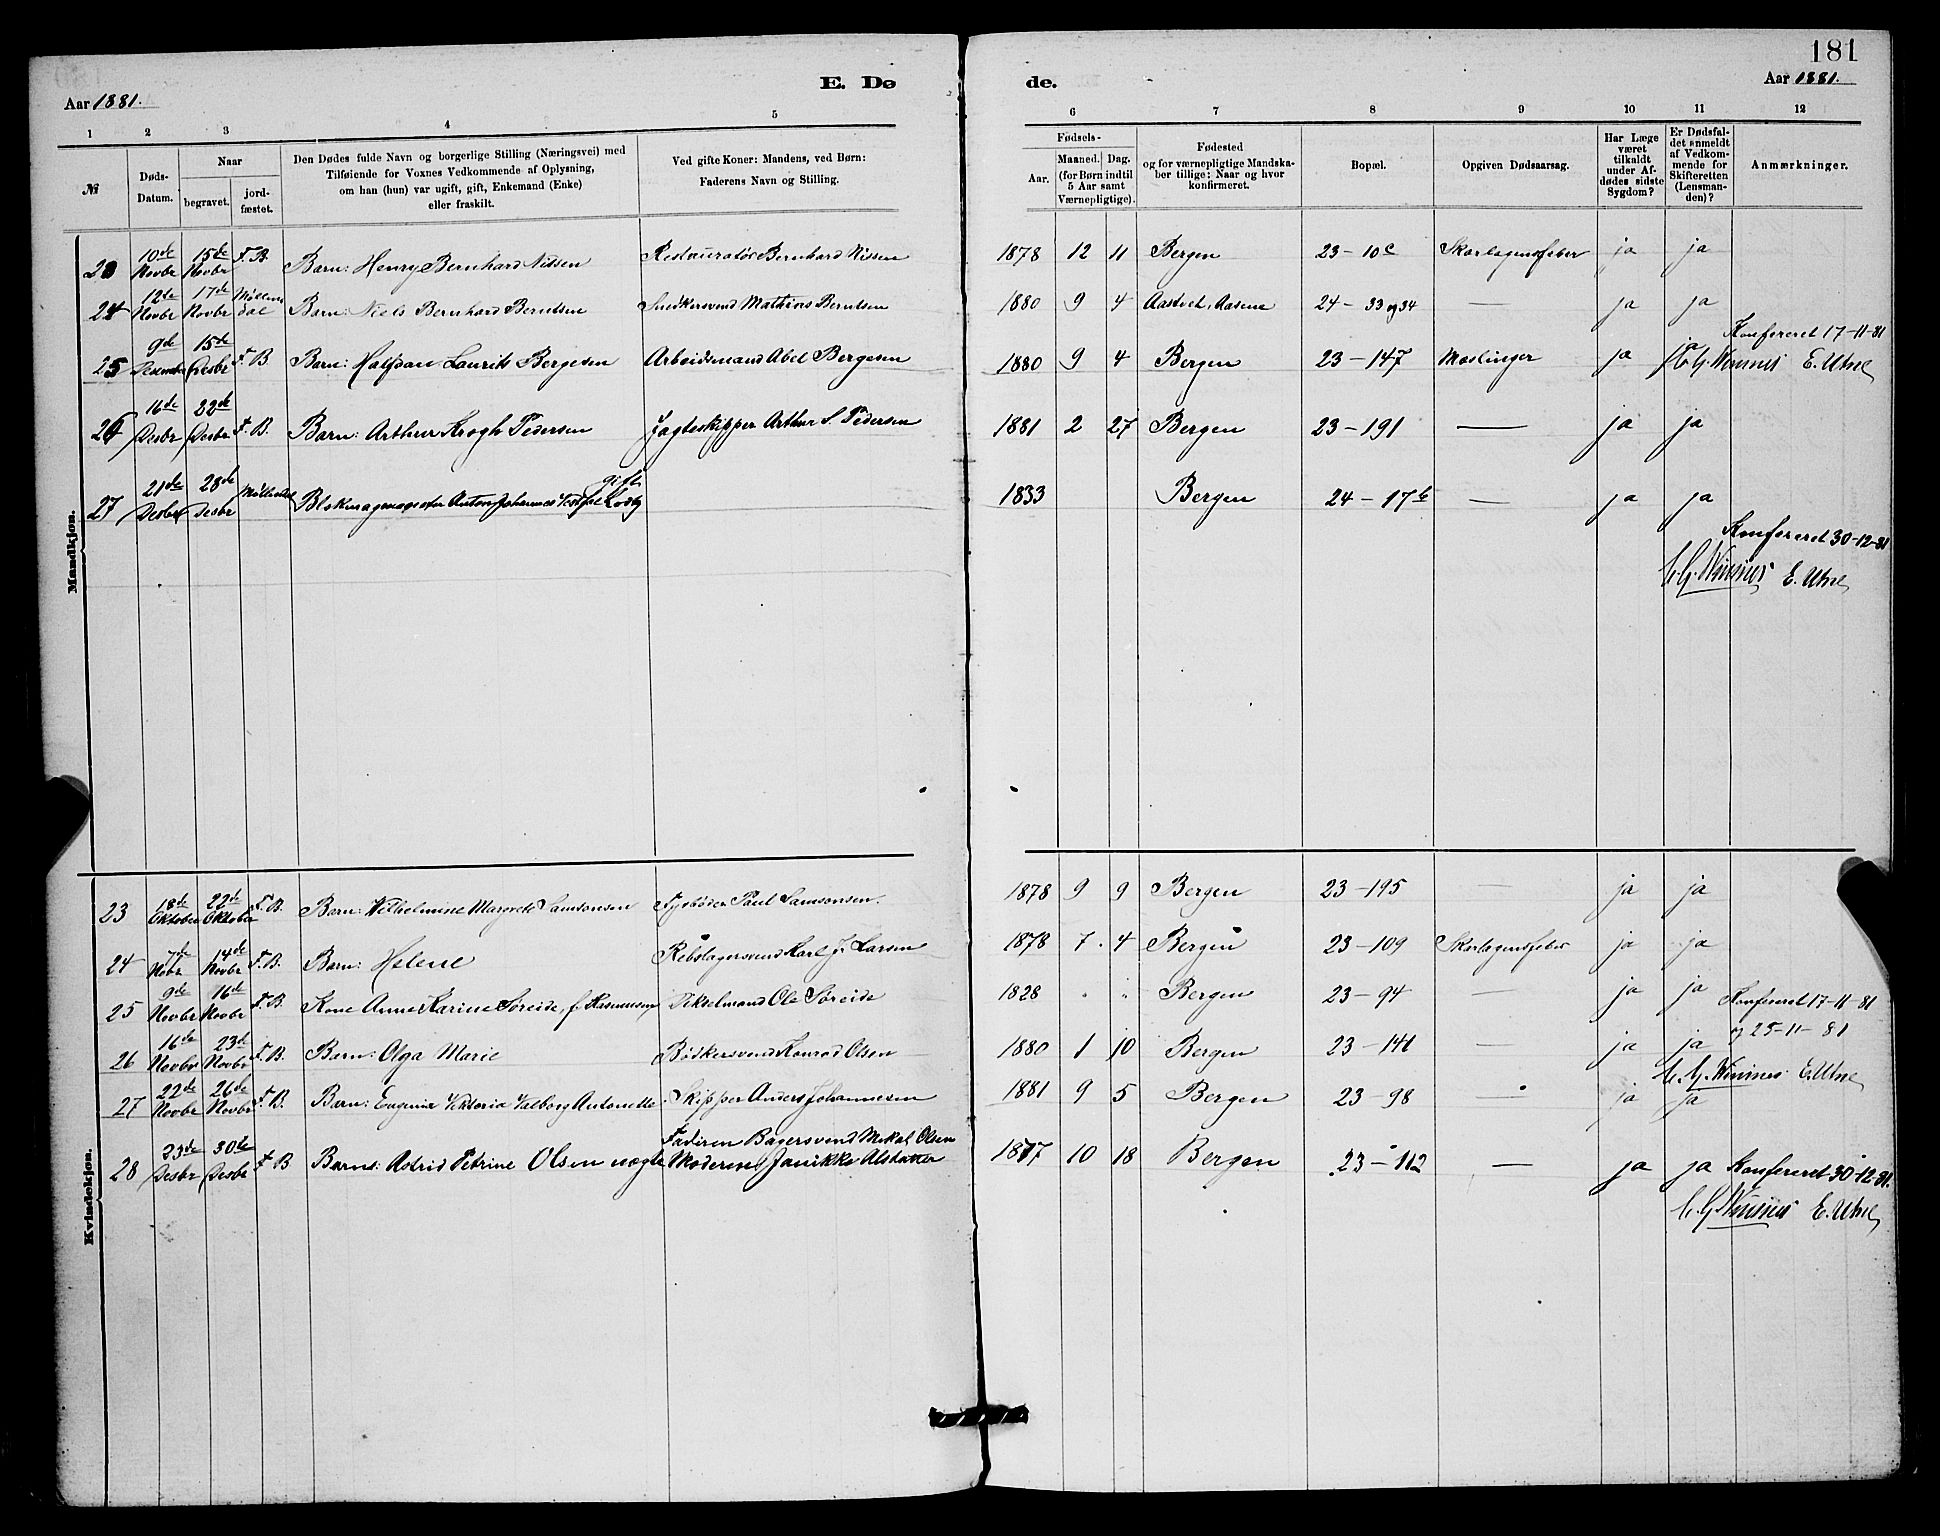 181
Aar 1881.
E. Dø
de.
Aar 1881.
1 2 3 4 5 6 7 8 9 10 11 12
№
Døds-Datum.
Naar
begravet.
jord-fæstet.
Den Dødes fulde Navn og borgerlige Stilling (Næringsvei) med
Tilføiende for Voxnes Vedkommende af Oplysning,
om han (hun) var ugift, gift, Enkemand (Enke)
eller fraskilt.
Ved gifte Koner: Mandens, ved Børn:
Faderens Navn og Stilling.
Fødsels-
Aar.
Maaned. Dag.
(for Børn indtil
5 Aar samt
Værnepligtige).
Fødested
og for værnepligtige Mandska-
ber tillige: Naar og hvor
konfirmeret.
Bopæl.
Opgiven Dødsaarsag.
Har Læge
været
tilkaldt
under Af-
dødes sidste
Sygdom?
Er Dødsfal-
det anmeldt
af Vedkom-
mende for
Skifteretten
(Lensman-
den)?
Anmærkninger.
Mandkjøn.
10de Novbr 15de Novbr F.B. Barn: Henry Bernhard Nissen Restauratør Bernhard Nissen 1878 12 11 Bergen 23-10c Skarlagensfeber ja ja
24 12te Novbr 17de Novbr Møllendal Barn: Niels Bernhard Berntsen Snedkersvend Mathias Berntsen 1880 9 4 Aasene 24-33 og 34 — ja ja
Konfereret 17-11-81
25 9de 15de Desbr F.B. Barn: Halfdan Laurits Bergesen Arbeidsmand Abel Bergesen 1880 9 4 Bergen 23-147 Mæslinger ja ja E. Utne
26 16de Desbr 22de Desbr F.B. Barn: Arthur Krogh Pedersen Jagteskipper Arthur S. Pedersen 1881 2 27 Bergen 23-191 — ja ja
27 21de Desbr 28de Desbr Anton Johannes gift 1833 Bergen 24-17b — ja ja
Konfereret 30-12-81
E. Utne
Kvindekjøn.
23 18de Oktober 22de Oktober F.B. Barn: Wilhelmine Margrete Samsonsen Fyrbøder Paul Samsonsen. 1878 9 9 Bergen 23-195 — ja ja
24 7de Nobr 14de Novbr F.B. Barn: Helene Rebslagersvend Karl J. Larsen 1878 7 4 Bergen 23-109 Skarlagensfeber ja ja
25 9de Novbr 16de Novbr F.B. Kone Anne Karine Søreide, f. Rasmussen Ole Søreide 1828 " " Bergen 23-94 — ja ja Konfereret 17-11-81
og 25-11-81
26 16de Novbr 23de Novbr F.B. Barn: Olga Marie Bødkersvend Konrad Olsen 1880 1 10 Bergen 23-141 ja ja
E. Utne
27 22de Novbr 26de Novbr F.B. Barn: Eugenia Viktoria Valborg Antonette Skipper Anders Johannesen 1881 9 5 Bergen 23-98 — ja ja
28 23de Desbr 30te Desbr F.B. Barn: Astrid Petrine Olsen uægte Faderen Bagersvend Mikal Olsen
Moderen Janikke 1877 10 18 Bergen 23-112 — ja ja Konfereret 30-12-81.
E. Utne